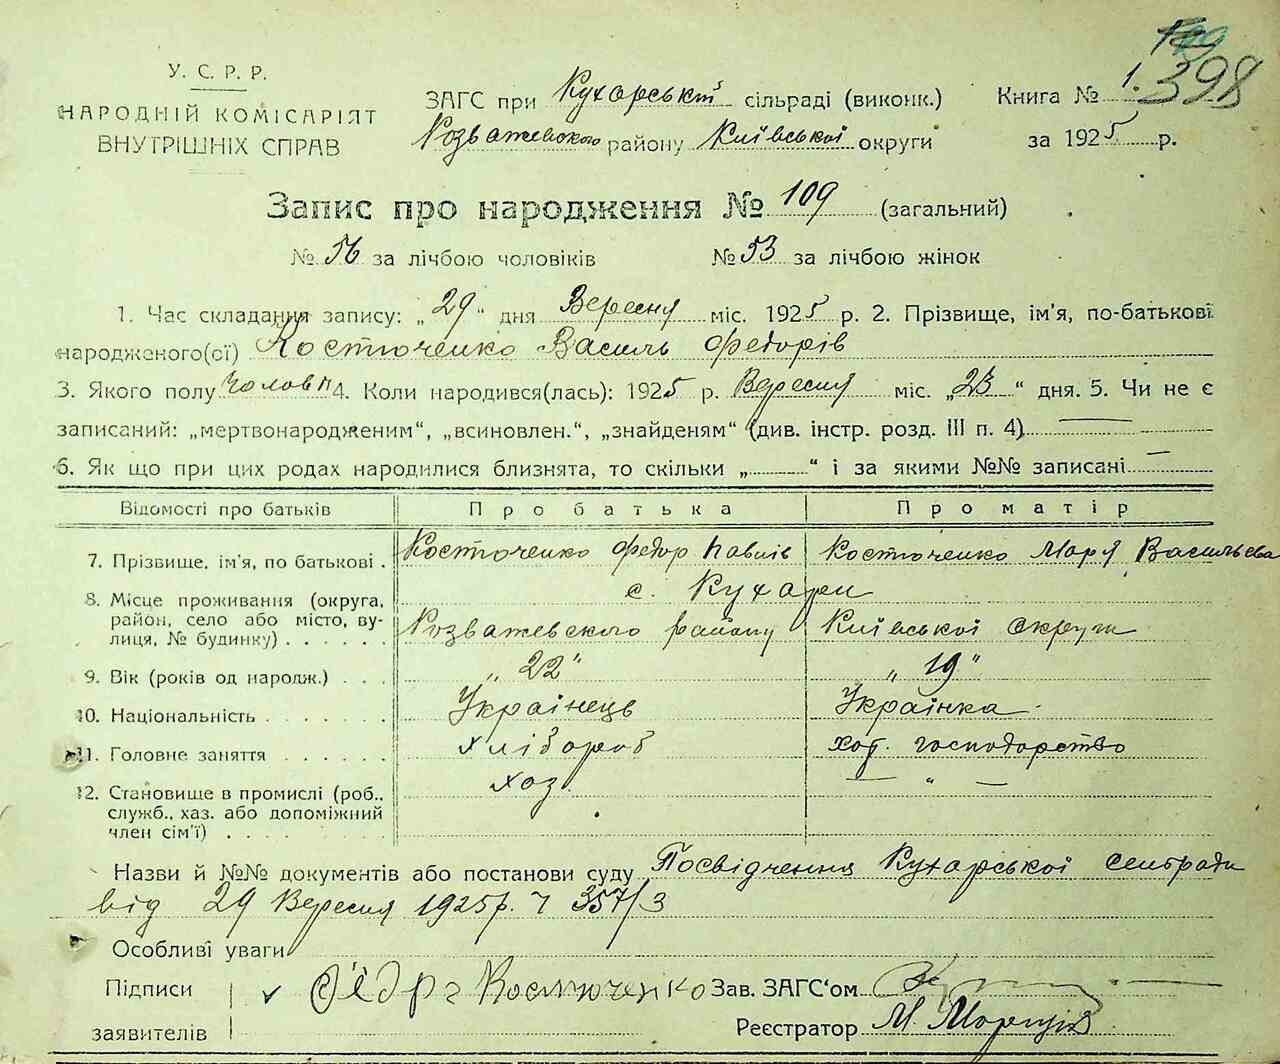 У. С. Р. Р.
НАРОДНІЙ КОМІСАРІЯТ
ВНУТРІШНІХ СПРАВ
ЗАГС при Кухарській сільраді (виконк.)
Розважевского району Київської округи
Книга № 1. 398
за 1925 р.
Запис про народження № 109 (загальний)
№ 56 за лічбою чоловіків № 53 за лічбою жінок
1. Час складання запису: „29“ дня Вересня міс. 1925 р. 2. Прізвище, ім'я, по-батькові
народженого(ої) Костюченко Василь Федорів
3. Якого полу Чолов 4. Коли народився(лась): 1925 р. Вересня міс. „23“ дня. 5. Чи не є
записаний: „мертвонародженим“, „всиновлен.“, „знайденям“ (див. інстр. розд. III п. 4) —
6. Як що при цих родах народилися близнята, то скільки „ “ і за якими №№ записані —
Відомості про батьків Про батька Про матір
7. Прізвище, ім'я, по батькові . Костюченко Федор Павлів Костюченко Марія Васильєва
8. Місце проживання (округа, с. Кухари
район, село або місто, ву- Розважевского району Київської округи
лиця, № будинку) . . . . . .
9. Вік (років од народж.) . . . „22“ „19“
10. Національність . . . . . . . Українець Українка
11. Головне заняття . . . . . . Хлібороб хат. господарство
12. Становище в промислі (роб., хоз. — „ —
служб., хаз. або допоміжний
член сім'ї) . . . . . . . . .
Назви й №№ документів або постанови суду Посвідчення Кухарської сельради
від 29 Вересня 1925 р. Ч 357/3
Особливі уваги
Підписи
заявителів
Костюченко
Зав. ЗАГС‘ом
Реєстратор М.